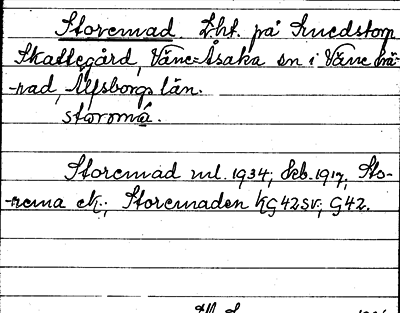 Storemad Lht. på Smedstorp
Skattegård, Väne-Åsaka sn i Väne hä-
rad, Älfsborgs län.
storomá.
Storemad ml. 1934; Skb. 1917, Sto-
rema ek.; Storemaden KG 42 SV; G 42.